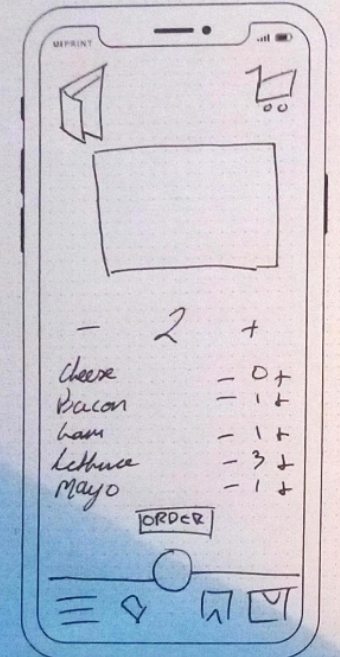 UIPRINT
- 2 +
Cheese - 0 +
Bacon - 1 +
ham - 1 +
Lethuce - 3 +
Mayo - 1 +
ORDER